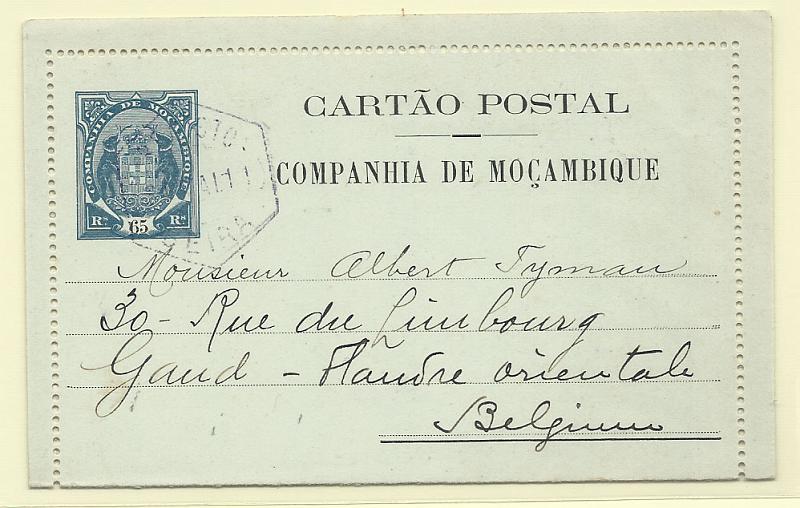 CARTÃO POSTAL
COMPANHIA DE MOÇAMBIQUE
COMPANHIA DE MOÇAMBIQUE
Rs 65 Rs
BEIRA
Monsieur Albert Tyman
30 - Rue du Limbourg
Gand - Flandre orientale
Belgium